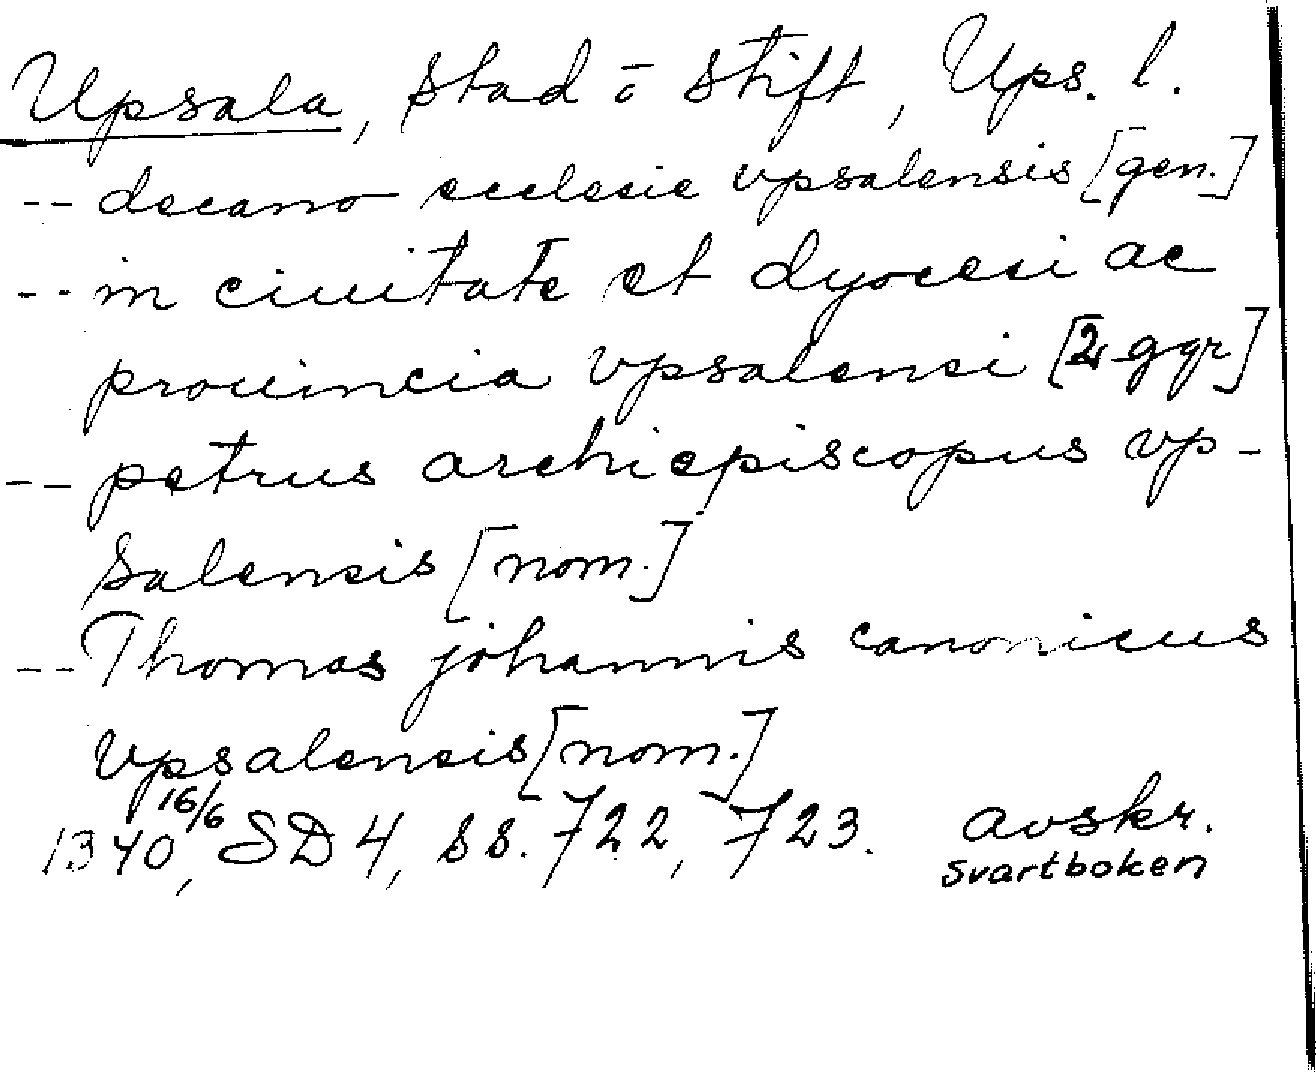 Upsala, stad o stift, Ups. l.
-- decano ecclesie vpsalensis [gen.]
-- in ciuitate et dyocesi ac
prouincia vpsalensi [2 ggr]
-- petrus archiepiscopus vp-
salensis [nom.]
-- Thomas johannis canonicus
vpsalensis [nom.]
1340 16/6, SD 4, ss. 722, 723. avskr.
Svartboken